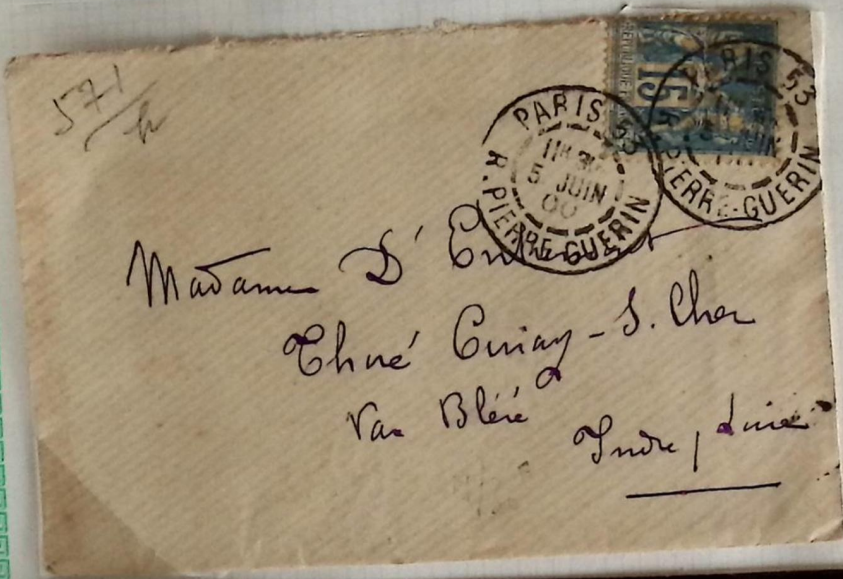 571
PARIS 53
11H 30
5 JUIN
00
R. PIERRE-GUERIN
15
PARIS 53
JUIN
R. PIERRE-GUERIN
Madame D'
Thoré Civray-S. Cher
Par Bléré
Indre, Loire